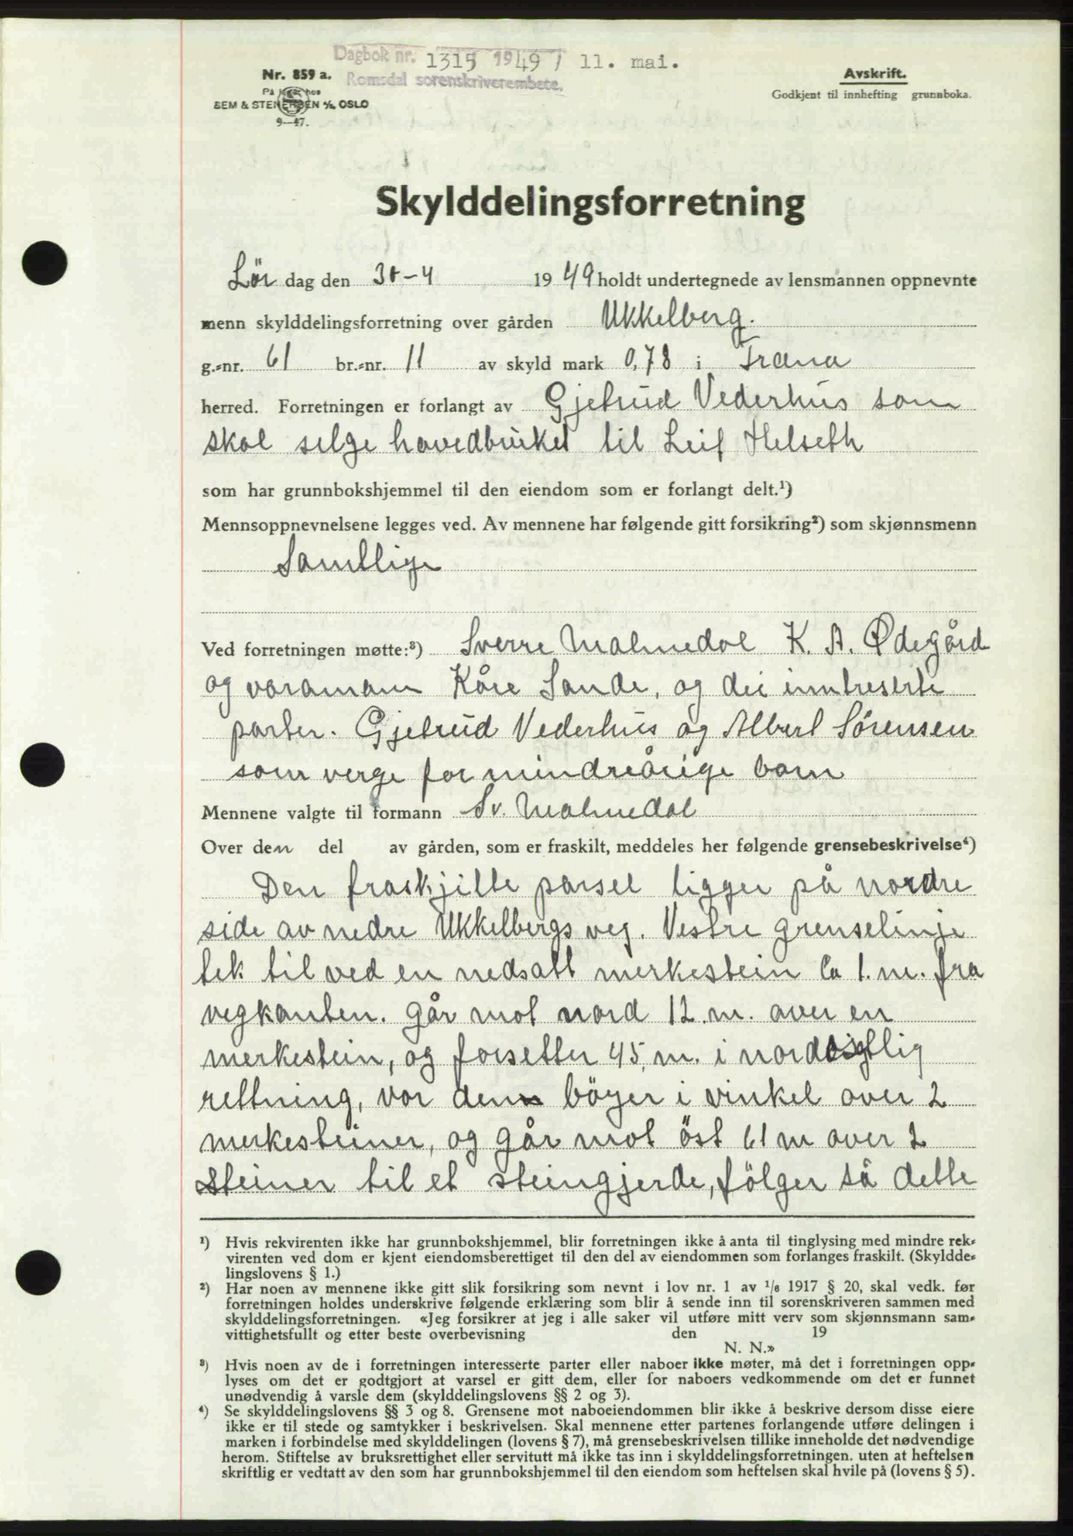 Dagbok nr. 1315 1949 / 11. mai.
Romsdal sorenskriverembete.
Nr. 859 a.
På lager hos
SEM & STENERSEN A/S, OSLO
9—47.
Avskrift.
Godkjent til innhefting grunnboka.
Skylddelingsforretning
Lør dag den 30-4 1949 holdt undertegnede av lensmannen oppnevnte
menn skylddelingsforretning over gården Ukkelberg.
g.-nr. 61 br.-nr. 11 av skyld mark 0,78 i Fræna
herred. Forretningen er forlangt av Gjetrud Vederhus som
skal selge hovedbruket til Leif Helseth
som har grunnbokshjemmel til den eiendom som er forlangt delt.¹)
Mennsoppnevnelsene legges ved. Av mennene har følgende gitt forsikring²) som skjønnsmenn
Samtlige
Ved forretningen møtte:³) Sverre Malmedal K. A. Ødegård
og varamann Kåre Sande, og dei inntreserte
parter. Gjetrud Vederhus og Albert Sörensen
som verge for mindreårige barn
Mennene valgte til formann Sv. Malmedal
Over den del av gården, som er fraskilt, meddeles her følgende grensebeskrivelse⁴)
Den fraskjillte parsel ligger på nordre
side av nedre Ukkelbergs veg. Vestre grenselinje
tek til ved en nedsatt merkestein ca 1. m. fra
vegkanten. Går mot nord 12. m. over en
merkestein, og forsetter 45, m. i nordøstlig
rettning, var den böyer i vinkel over 2
merkesteiner, og går mot öst 61 m over 2
steiner til et steingjerde, fölger så dette
¹) Hvis rekvirenten ikke har grunnbokshjemmel, blir forretningen ikke å anta til tinglysing med mindre rek-
virenten ved dom er kjent eiendomsberettiget til den del av eiendommen som forlanges fraskilt. (Skyldde-
lingslovens § 1.)
²) Har noen av mennene ikke gitt slik forsikring som nevnt i lov nr. 1 av 1/6 1917 § 20, skal vedk. før
forretningen holdes underskrive følgende erklæring som blir å sende inn til sorenskriveren sammen med
skylddelingsforretningen. «Jeg forsikrer at jeg i alle saker vil utføre mitt verv som skjønnsmann sam-
vittighetsfullt og etter beste overbevisning den 19
N. N.»
³) Hvis noen av de i forretningen interesserte parter eller naboer ikke møter, må det i forretningen opp-
lyses om det er godtgjort at varsel er gitt dem, eller for naboers vedkommende om det er funnet
unødvendig å varsle dem (skylddelingslovens §§ 2 og 3).
⁴) Se skylddelingslovens §§ 3 og 8. Grensene mot naboeiendommen blir ikke å beskrive dersom disse eiere
ikke er til stede og samtykker i beskrivelsen. Skal mennene etter partenes forlangende utføre delingen i
marken i forbindelse med skylddelingen (lovens § 7), må grensebeskrivelsen tillike inneholde det nødvendige
herom. Stiftelse av bruksrettighet eller servitutt må ikke tas inn i skylddelingsforretningen. uten at heftelsen
skriftlig er vedtatt av den som har grunnbokshjemmel til den eiendom som heftelsen skal hvile på (lovens § 5).